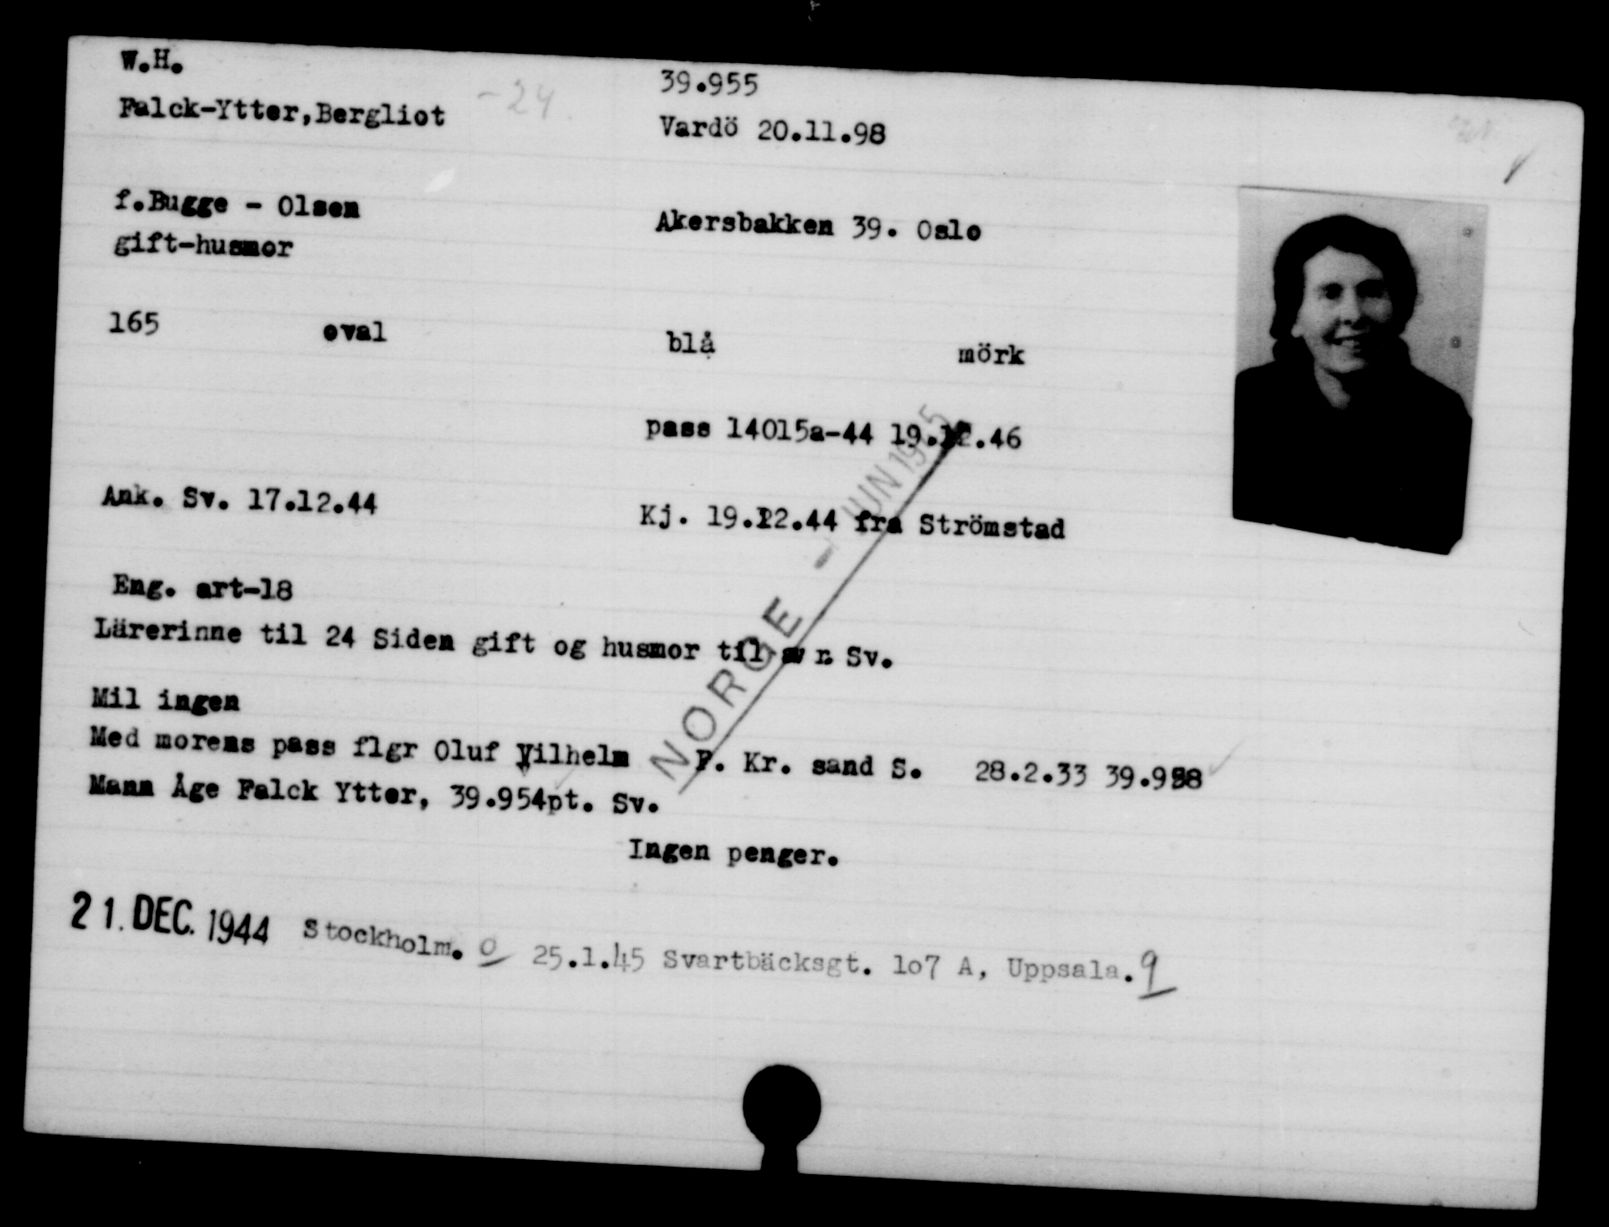 W.H.
39.955
Falck-Ytter,Bergliot
-24
Vardö 20.11.98
f.Bugge - Olsen
Akersbakken 39. Oslo
gift-husmor
165 oval blå mörk
pass 14015a-44 19.12.46
Ank. Sv. 17.12.44
Kj. 19.12.44 fra Strömstad
Eng. art-18
Lärerinne til 24 Siden gift og husmor til av r. Sv.
Mil ingen
Med morens pass flgr Oluf Vilhelm F. Kr. sand S. 28.2.33 39.958
Mann Åge Falck Ytter, 39.954pt. Sv.
Ingen penger.
NORGE - JUN 1945
21. DEC. 1944 Stockholm. o 25.1.45 Svartbäcksgt. 1o7 A, Uppsala. 9